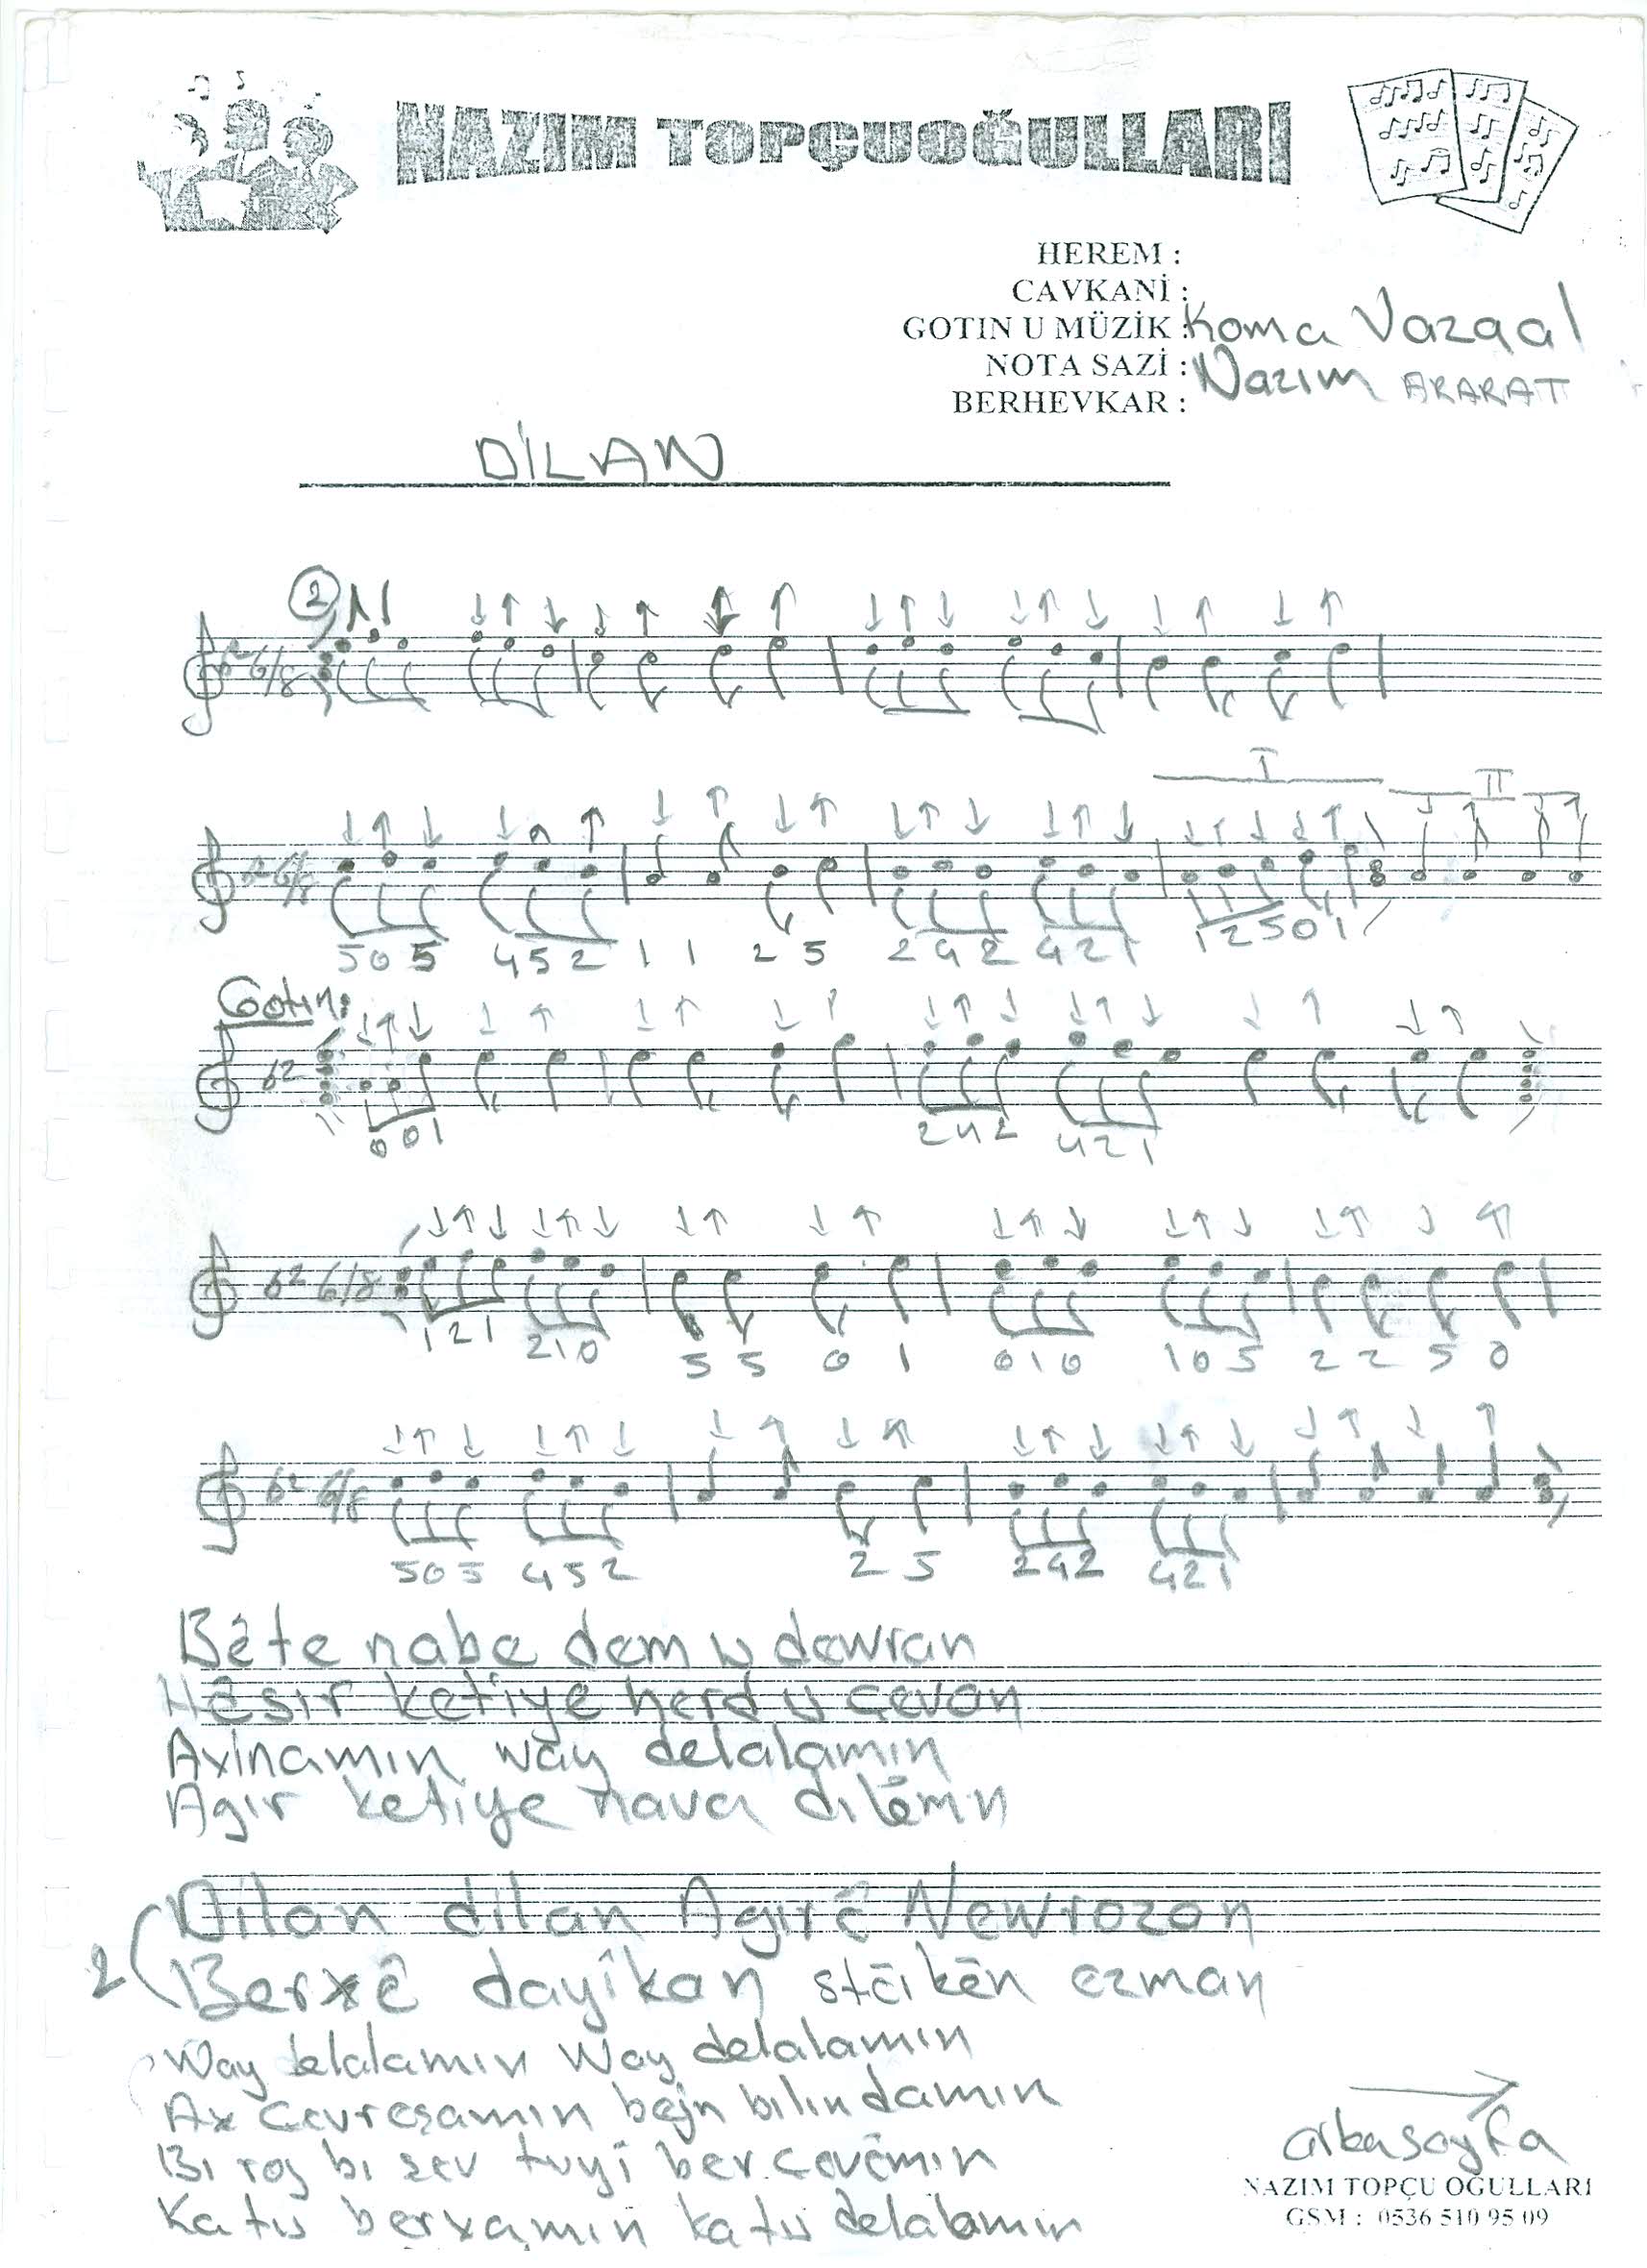 NAZIM TOPÇUOĞULLARI
HEREM :
CAVKANİ :
GOTIN U MÜZİK : Koma Vazgal
NOTA SAZİ : Nazım ARARAT
BERHEVKAR :
DİLAN
2
b2 6/8
I II
b2 6/8
505 452 1 1 2 5 242 421 12501
Gotın:
b2
001 242 421
b2 6/8
121 210 5 5 0 1 010 105 2 2 5 0
b2 6/8
505 452 2 5 242 421
Bête nabe dem u dewran
Hêsır ketiye herd u çevan
Axinamın way delalamın
Agır ketiye nava dılêmın
2 ( Dilan dilan Agırê Newrozan
Berxê dayîkan stêrkên ezman
Way delalamın Way delalamın
Ax çavreşamın bejn bılındamın
Bı roj bı şev tuyî ber çevêmın
Ka tu berxamın ka tu delalamın
arkasayfa
NAZIM TOPÇU OĞULLARI
GSM : 0536 510 95 09